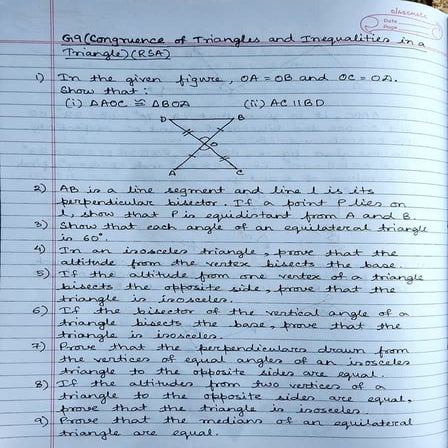 classmate
Date
Page
G9 (Congruence of Triangles and Inequalities in a
Triangle) (RSA)
1) In the given figure, OA = OB and OC = OD.
Show that :
(i) ΔAOC ≅ ΔBOD (ii) AC || BD
D B
O
A C
2) AB is a line segment and line l is its
perpendicular bisector. If a point P lies on
l, show that P is equidistant from A and B.
3) Show that each angle of an equilateral triangle
is 60°.
4) In an isosceles triangle, prove that the
altitude from the vertex bisects the base.
5) If the altitude from one vertex of a triangle
bisects the opposite side, prove that the
triangle is isosceles.
6) If the bisector of the vertical angle of a
triangle bisects the base, prove that the
triangle is isosceles.
7) Prove that the perpendiculars drawn from
the vertices of equal angles of an isosceles
triangle to the opposite sides are equal.
8) If the altitudes from two vertices of a
triangle to the opposite sides are equal,
prove that the triangle is isosceles.
9) Prove that the medians of an equilateral
triangle are equal.